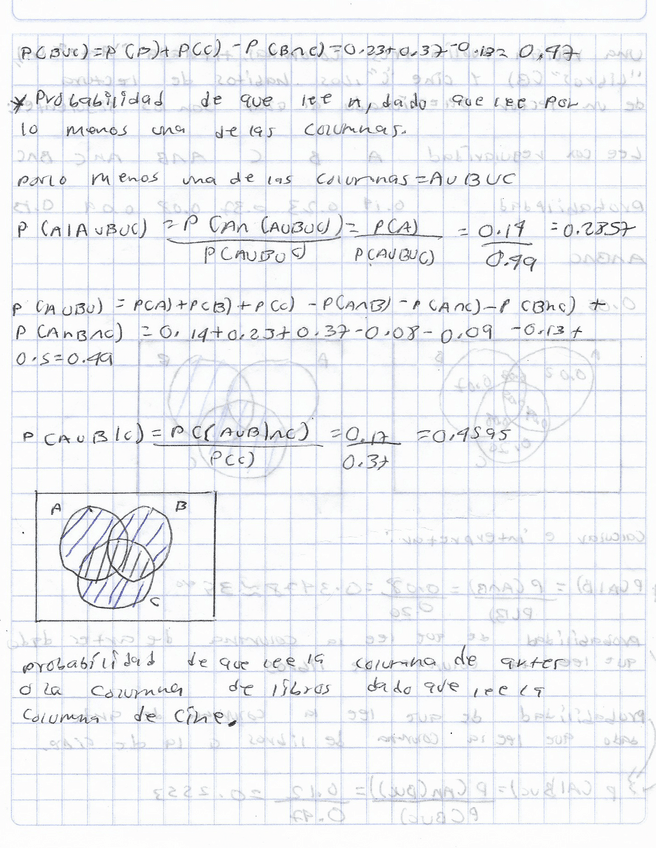 P(BUC)=P(B)+P(C)-P(B∩C)=0.23+0.37-0.13=0.47
* Probabilidad de que lee n, dado que lee por
lo menos una de las columnas.
por lo menos una de las columnas = AUBUC
P(A|AUBUC) = P(A∩(AUBUC))/P(AUBUC) = P(A)/P(AUBUC) = 0.14/0.49 = 0.2857
P(AUBU) = P(A)+P(B)+P(C)-P(A∩B)-P(A∩C)-P(B∩C)+
P(A∩B∩C) = 0.14+0.23+0.37-0.08-0.09-0.13+
0.5=0.49
P(AUB|C) = P((AUB)∩C)/P(C) = 0.17/0.37 = 0.4595
A B
C
probabilidad de que lee la columna de antes
o la columna de libros dado que lee la
columna de cine.